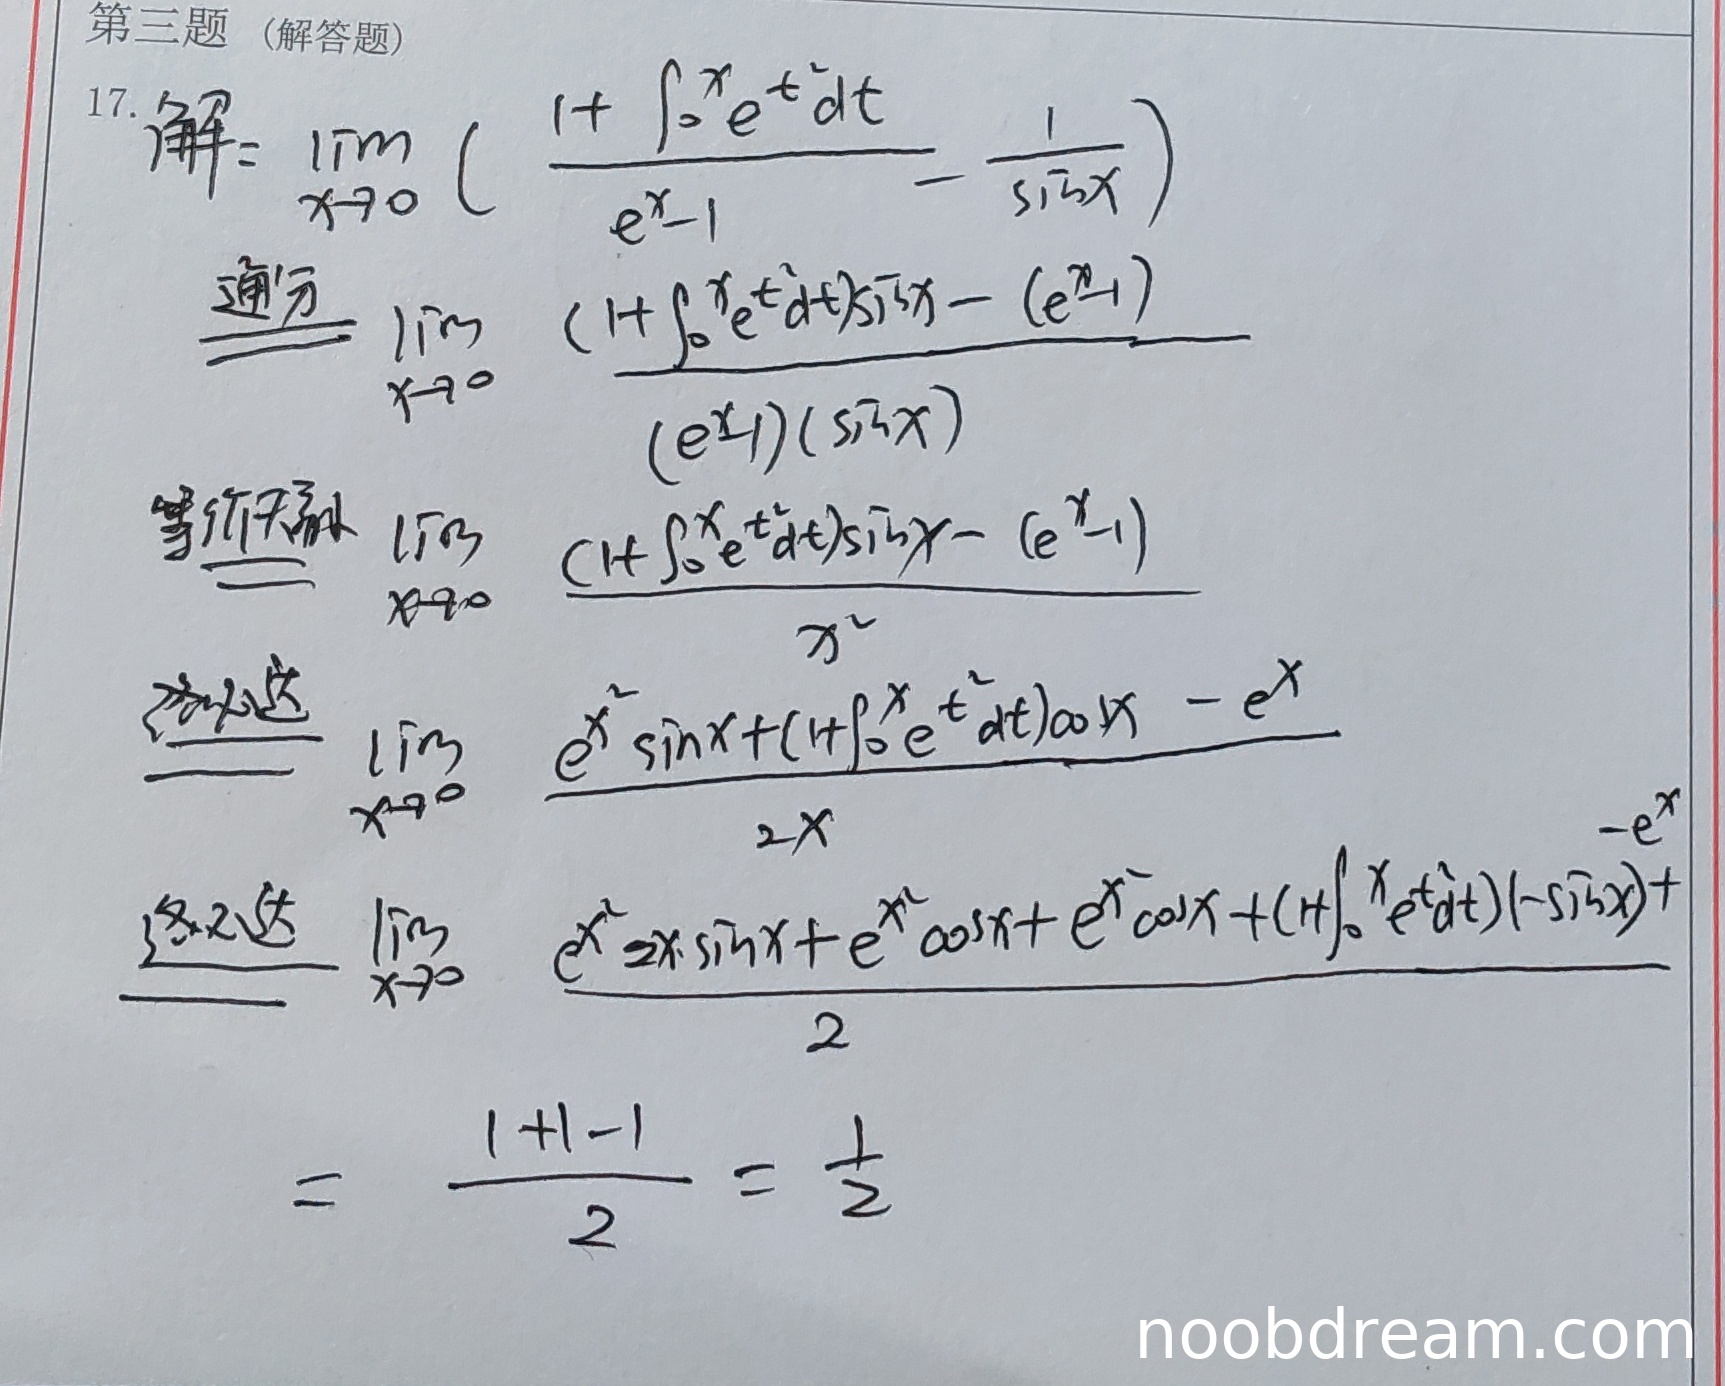 第三题 (解答题)
17. 解= lim x→0 ( (1+∫₀ˣe^{t²}dt)/(eˣ-1) - 1/sinx )
通分 lim x→0 ((1+∫₀ˣe^{t²}dt)sinx - (eˣ-1))/((eˣ-1)(sinx))
等价无穷小 lim x→0 ((1+∫₀ˣe^{t²}dt)sinx - (eˣ-1))/x²
洛必达 lim x→0 (e^{x²}sinx+(1+∫₀ˣe^{t²}dt)cosx - eˣ)/2x
洛必达 lim x→0 (e^{x²}2x·sinx+e^{x²}cosx+e^{x²}cosx+(1+∫₀ˣe^{t²}dt)(-sinx)+ -eˣ)/2
= (1+1-1)/2 = 1/2
noobdream.com